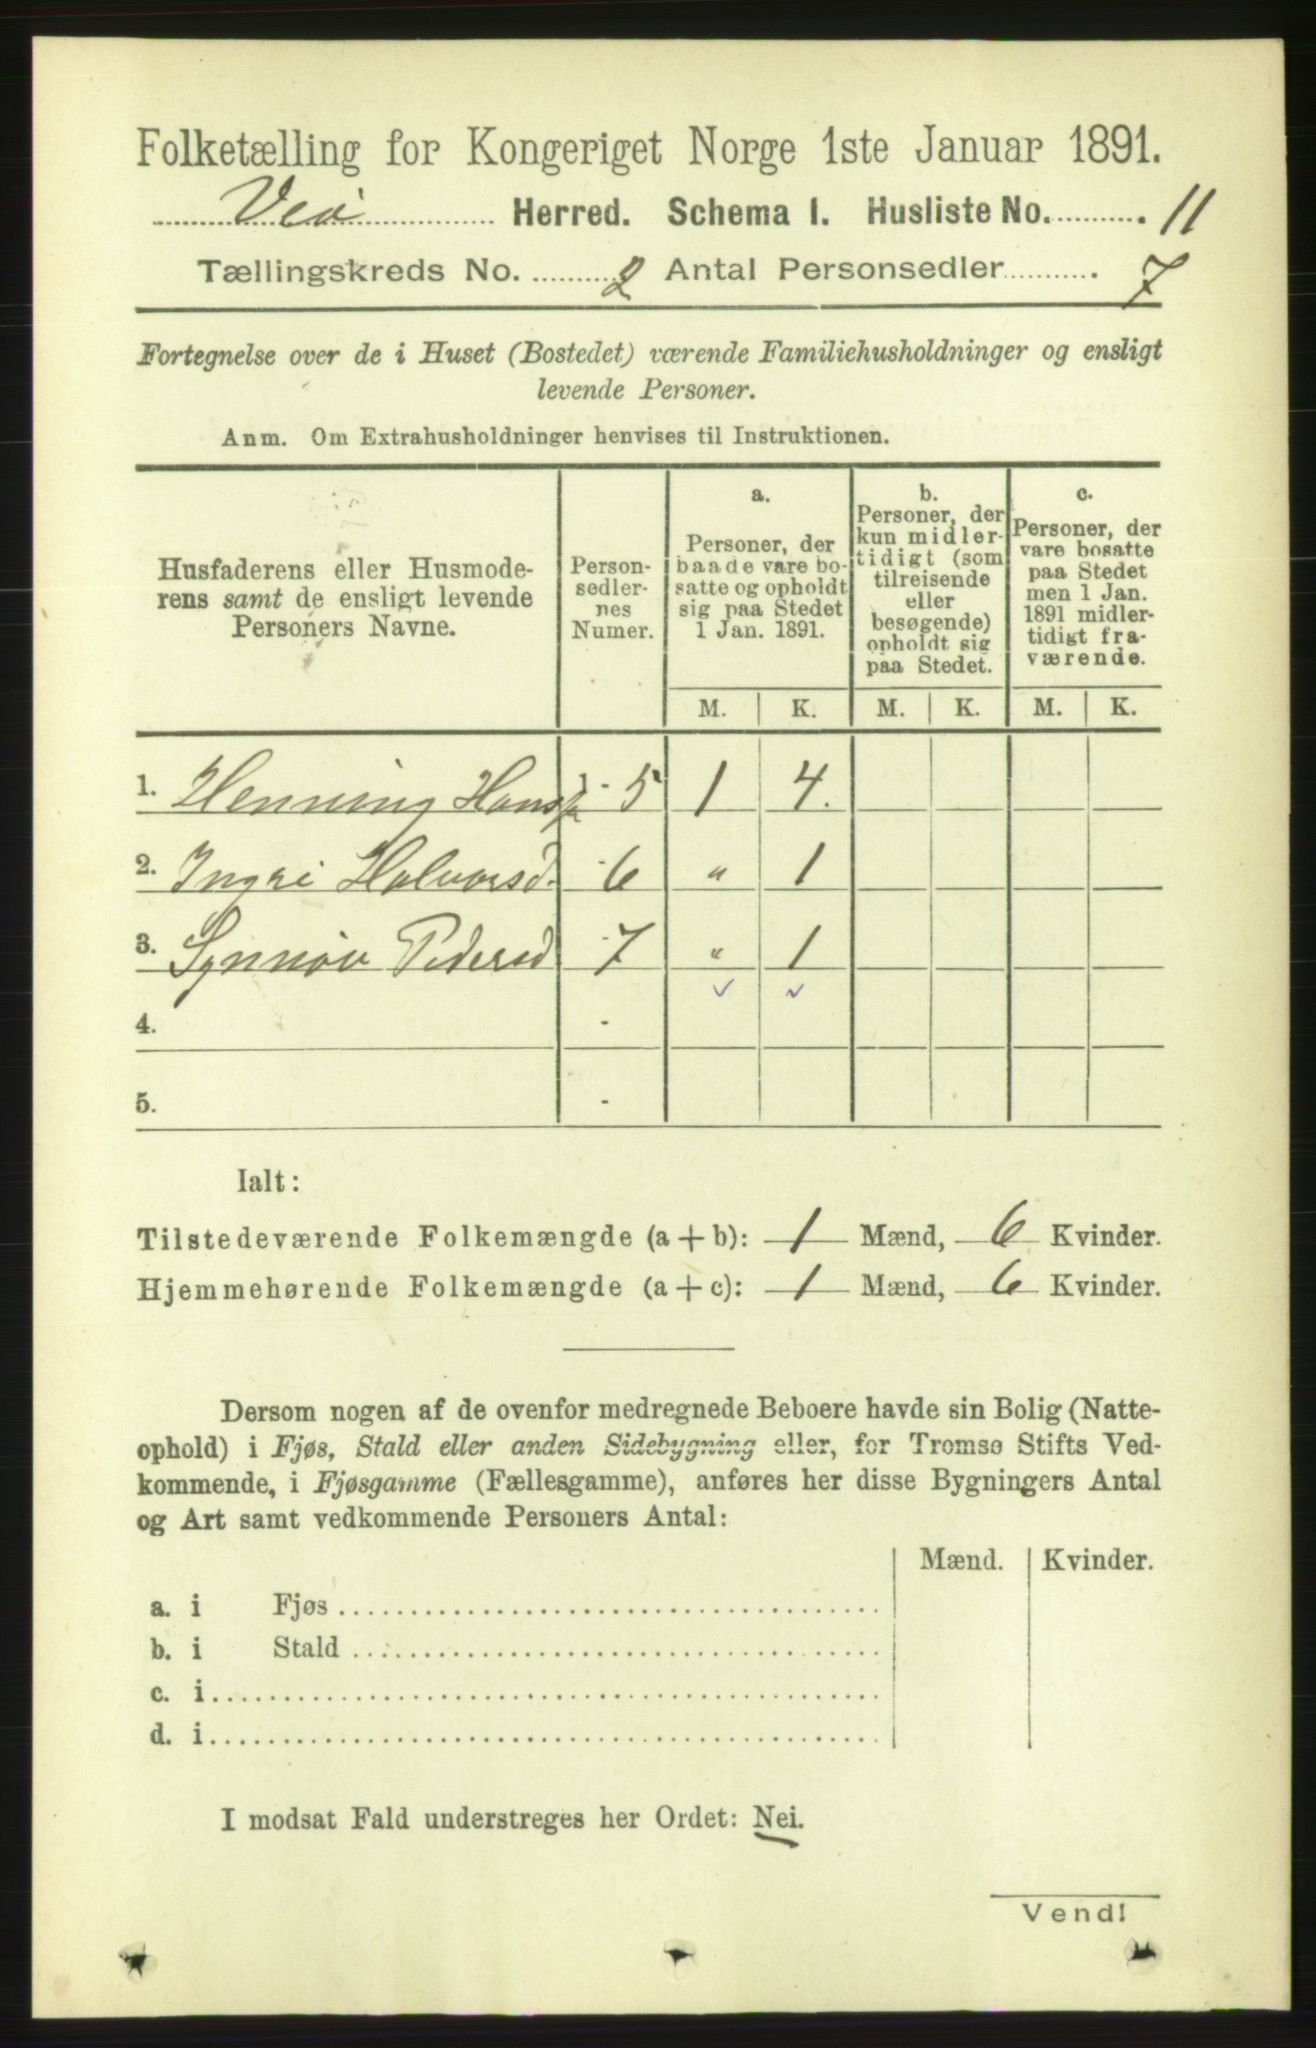 Folketælling for Kongeriget Norge 1ste Januar 1891.
Veø Herred. Schema I. Husliste No. 11
Tællingskreds No. 2 Antal Personsedler 7
Fortegnelse over de i Huset (Bostedet) værende Familiehusholdninger og ensligt
levende Personer.
Anm. Om Extrahusholdninger henvises til Instruktionen.
Husfaderens eller Husmode-
rens samt de ensligt levende
Personers Navne.
Person-
sedler-
nes
Numer.
a.
Personer, der
baade vare bo-
satte og opholdt
sig paa Stedet
1 Jan. 1891.
b.
Personer, der
kun midler-
tidigt (som
tilreisende
eller
besøgende)
opholdt sig
paa Stedet.
c.
Personer, der
vare bosatte
paa Stedet
men 1 Jan.
1891 midler-
tidigt fra-
værende.
M. K. M. K. M. K.
1. Henning Hans 1 - 5 1 4.
2. Ingri Halvorsd. - 6 " 1
3. Synnøv Pedersd - 7 " 1
4. -
5. -
Ialt:
Tilstedeværende Folkemængde (a + b): 1 Mænd, 6 Kvinder.
Hjemmehørende Folkemængde (a + c): 1 Mænd, 6 Kvinder.
Dersom nogen af de ovenfor medregnede Beboere havde sin Bolig (Natte-
ophold) i Fjøs, Stald eller anden Sidebygning eller, for Tromsø Stifts Ved-
kommende, i Fjøsgamme (Fællesgamme), anføres her disse Bygningers Antal
og Art samt vedkommende Personers Antal:
Mænd. Kvinder.
a. i Fjøs
b. i Stald
c. i
d. i
I modsat Fald understreges her Ordet: Nei.
Vend!